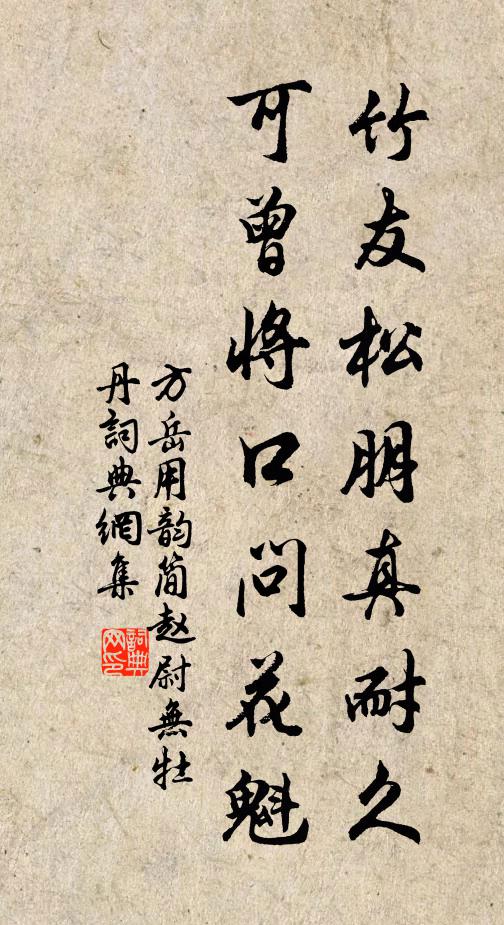 竹友松朋真耐久
可曾將口問花魁
方岳用韵简赵尉無牡
丹詞典網集
詞典
网印